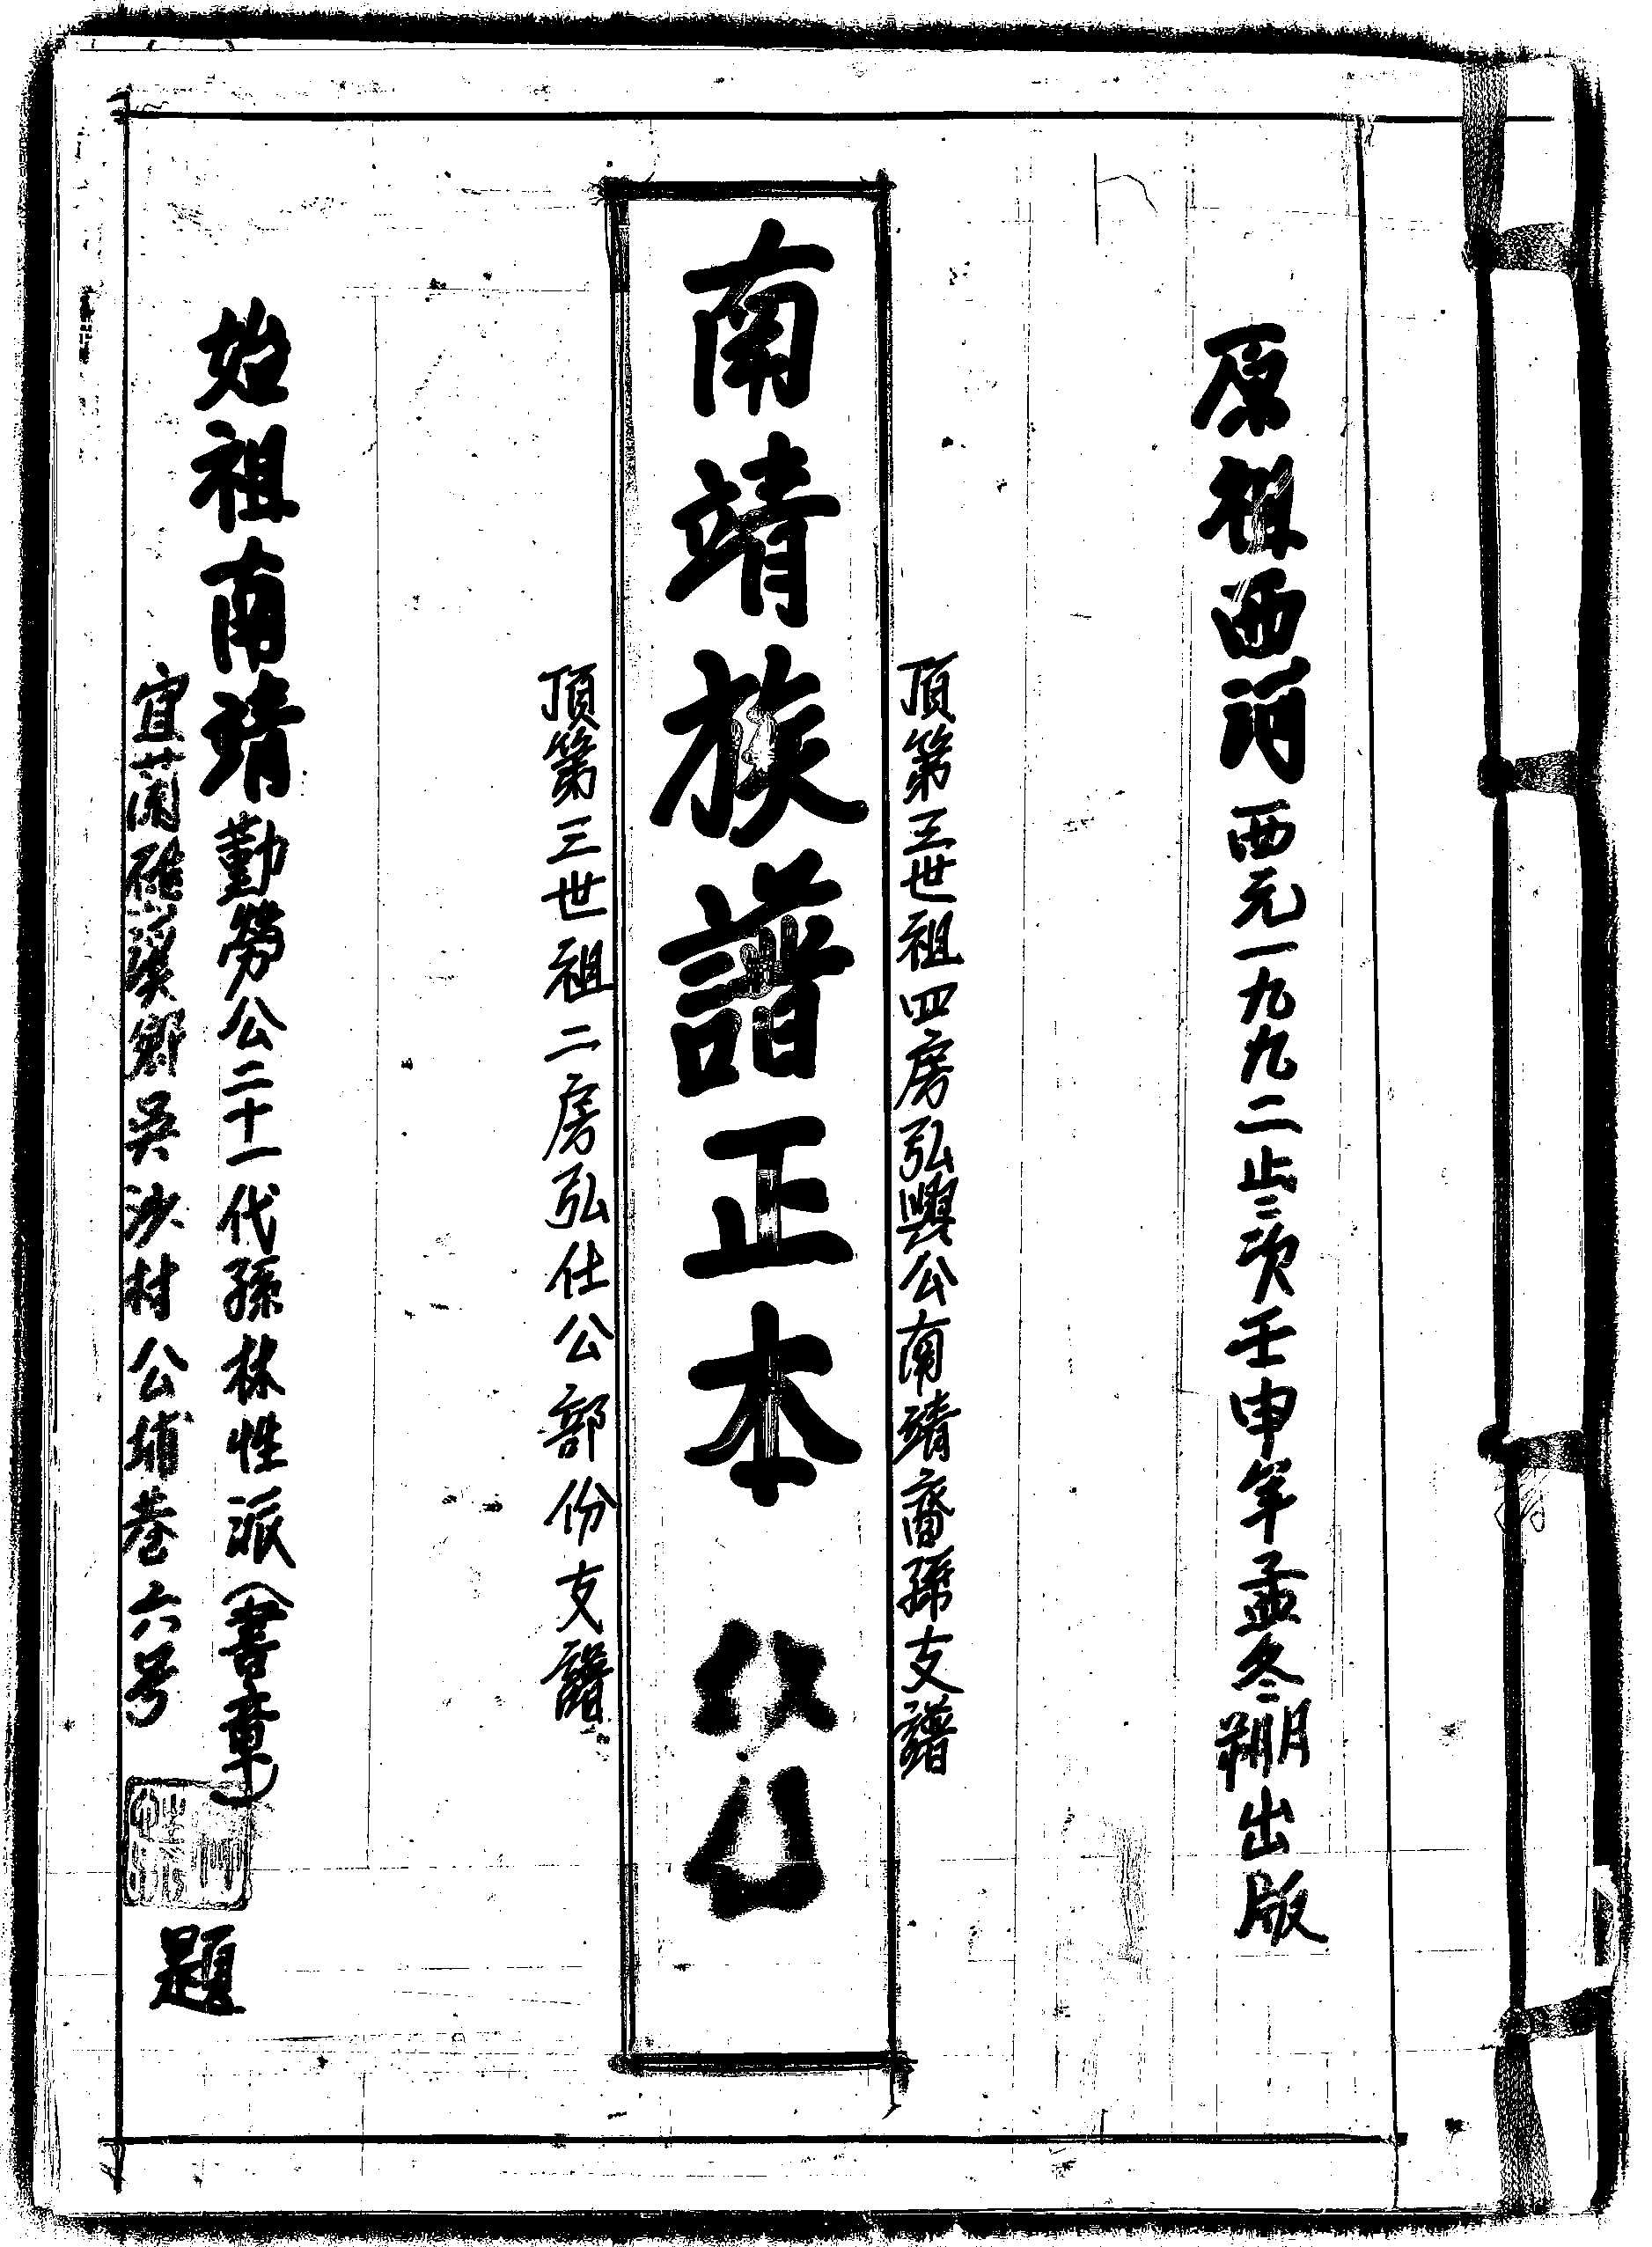 原祖西河 西元一九九二歲次壬申年孟冬朔月出版
頂第三世祖四房弘興公南靖裔孫支譜
南靖族譜正本
頂第三世祖二房弘仕公部份支譜
始祖南靖勤勞公二十一代孫林性派(書章)
宜蘭礁溪鄉吳沙村公埔巷六号
題